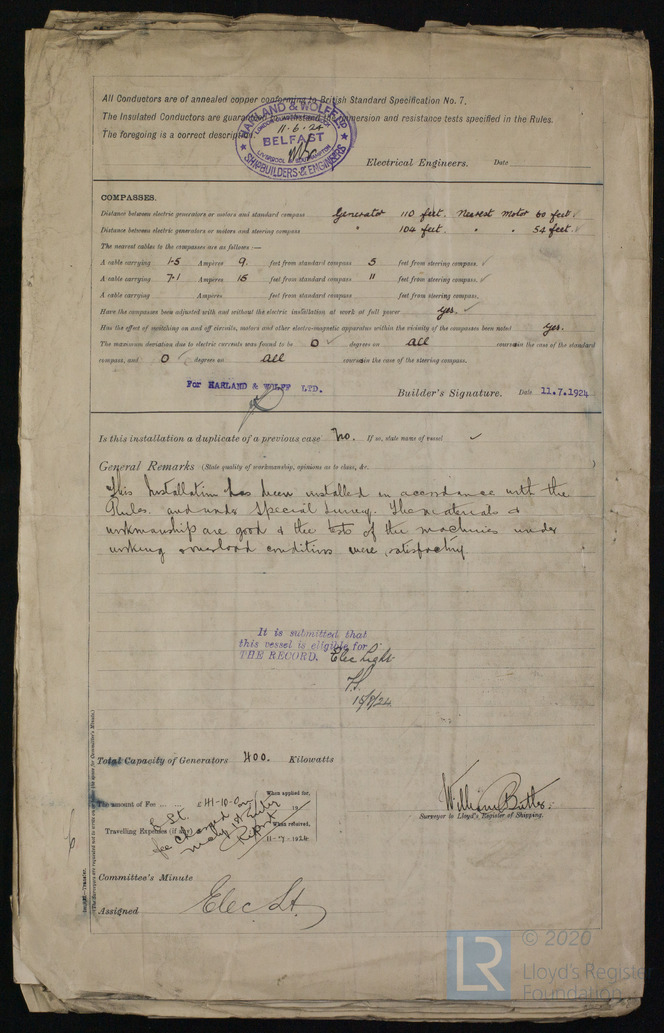 All Conductors are of annealed copper conforming to British Standard Specification No. 7.
The Insulated Conductors are guaranteed to withstand the immersion and resistance tests specified in the Rules.
The foregoing is a correct description.
HARLAND & WOLFF LTD
11-6-24
BELFAST
LIVERPOOL & SOUTHAMPTON
SHIPBUILDERS & ENGINEERS
Electrical Engineers. Date
COMPASSES.
Distance between electric generators or motors and standard compass Generator 110 feet. Nearest Motor 60 feet.
Distance between electric generators or motors and steering compass " 104 feet. " " 54 feet.
The nearest cables to the compasses are as follows :—
A cable carrying 1.5 Amperes 9. feet from standard compass 5 feet from steering compass.
A cable carrying 7.1 Amperes 15 feet from standard compass 11 feet from steering compass.
A cable carrying Amperes feet from standard compass feet from steering compass.
Have the compasses been adjusted with and without the electric installation at work at full power yes.
Has the effect of switching on and off circuits, motors and other electro-magnetic apparatus within the vicinity of the compasses been noted yes.
The maximum deviation due to electric currents was found to be 0 degrees on all course in the case of the standard
compass, and 0 degrees on all course in the case of the steering compass.
For HARLAND & WOLFF LTD.
Builder's Signature. Date 11.7.1924
Is this installation a duplicate of a previous case No. If so, state name of vessel
General Remarks (State quality of workmanship, opinions as to class, &c. )
This Installation has been installed in accordance with the
Rules. and under Special Survey. The materials &
workmanship are good & the tests of the machines under
working & overload conditions were satisfactory
It is submitted that
this vessel is eligible for
THE RECORD. Elec Light
15/9/24
Total Capacity of Generators 400. Kilowatts
The amount of Fee ... ... £41-10-0 When applied for,
19
Travelling Expenses (if any) £ When received,
11-9-1924
fee charged on
Report
William Butler
Surveyor to Lloyd's Register of Shipping.
Committee's Minute
Assigned Elec. Lt.
Im. 427—Transfer.
(The Surveyors are requested not to write on or below the space for Committee's Minute.)
LR © 2020
Lloyd's Register
Foundation